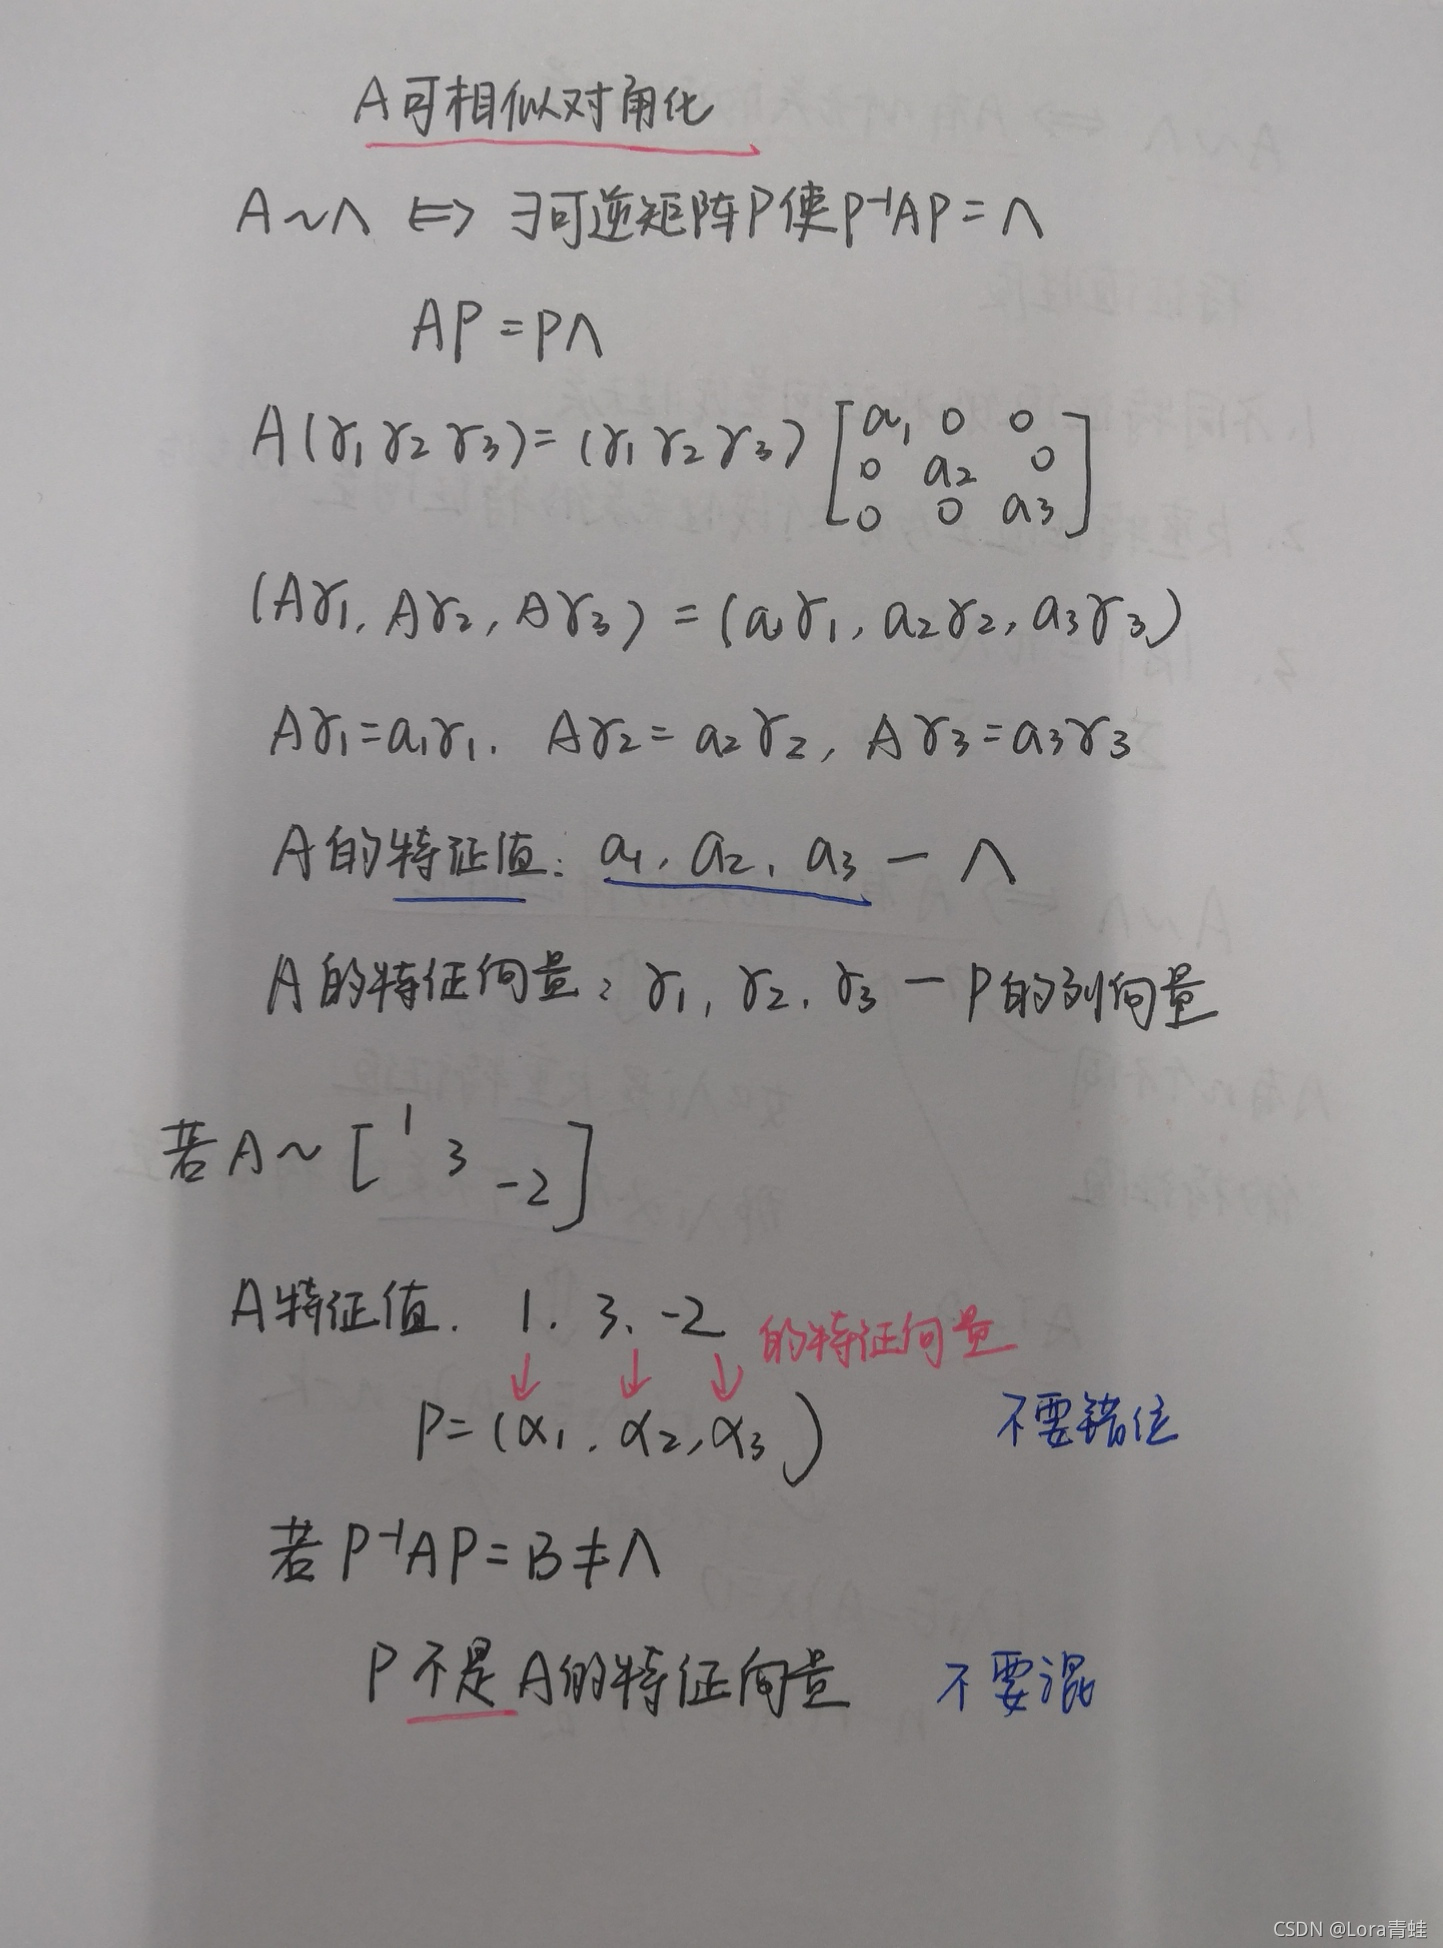 A可相似对角化
A~Λ ⇔ ∃可逆矩阵P使P⁻¹AP=Λ
AP=PΛ
A(γ₁ γ₂ γ₃)=(γ₁ γ₂ γ₃)[a₁ 0 0
0 a₂ 0
0 0 a₃]
(Aγ₁, Aγ₂, Aγ₃)=(a₁γ₁, a₂γ₂, a₃γ₃)
Aγ₁=a₁γ₁. Aγ₂=a₂γ₂, Aγ₃=a₃γ₃
A的特征值: a₁, a₂, a₃ — Λ
A的特征向量: γ₁, γ₂, γ₃ — P的列向量
若A~[1 3 -2]
A特征值. 1. 3. -2 的特征向量
↓ ↓ ↓
P=(α₁, α₂, α₃) 不要错位
若P⁻¹AP=B≠Λ
P不是A的特征向量 不要混
CSDN @Lora青蛙